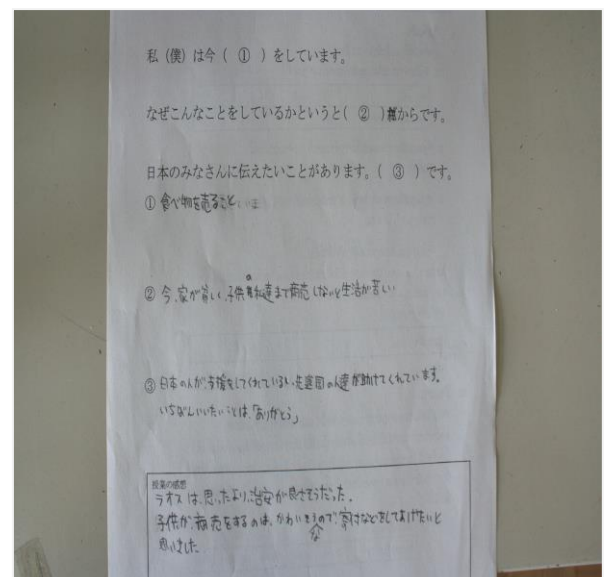 私（僕）は今（ ① ）をしています。
なぜこんなことをしているかというと（ ② ）からです。
日本のみなさんに伝えたいことがあります。（ ③ ）です。
① 食べ物を売ること
② 今、家が貧しく、子供の私達まで商売しないと生活が苦しい
③ 日本の人が、支援をしてくれているし、先進国の人達が助けてくれています。
いちばんいいたいことは、「ありがとう」
授業の感想
ラオスは、思ったより、治安が良さそうだった。
子供が、商売をするのは、かわいそうなので、寄付などをしてあげたいと
思いました。